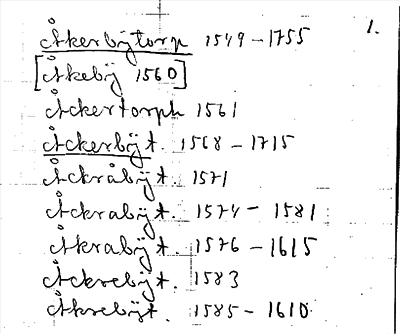 Åkerbÿtorp 1549-1755 1.
[Åkebÿ 1560]
Åckertorph 1561
Åckerbÿt. 1568-1715
Åckråbÿt. 1571
Åckrabÿt. 1574-1581
Åkrabÿt. 1576-1615
Åckrebÿt. 1583
Åkrebÿt. 1585-1610